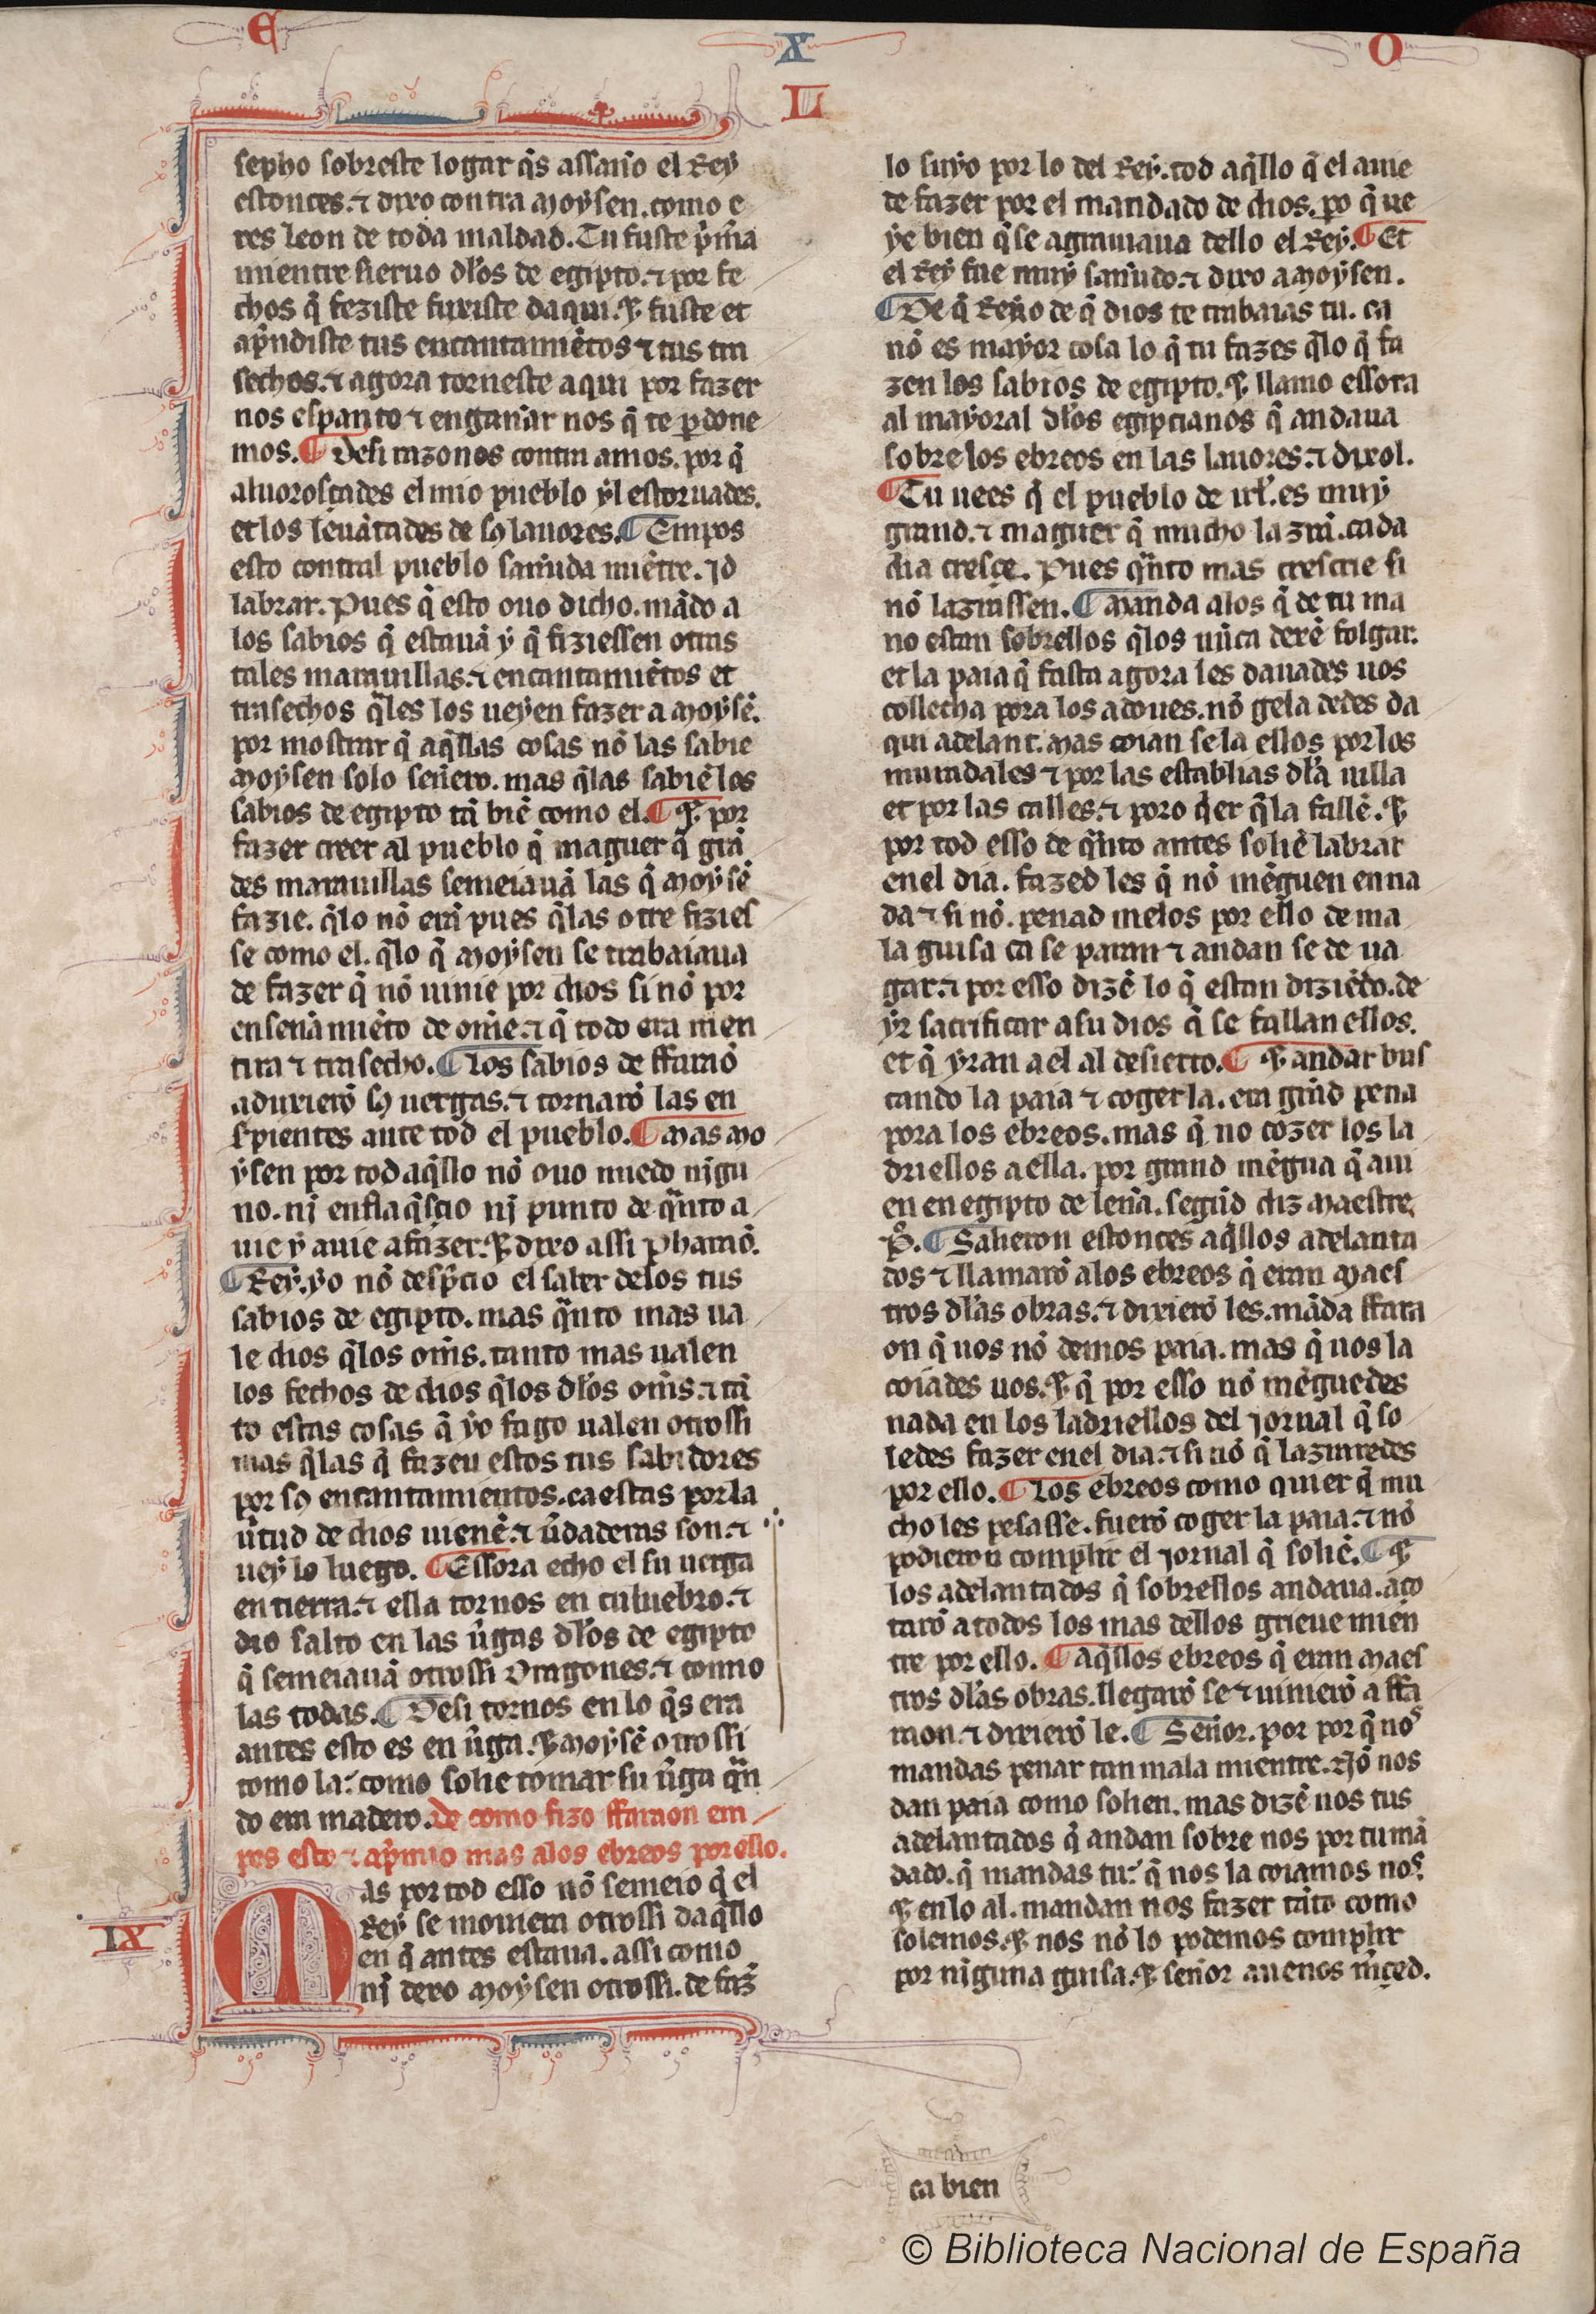 E X O
L
sepho sobreste logar q̃s assaño el Rey
estonces. ⁊ dixo contra Moysen. como e
res leon de toda maldad. Tu fuste p̃mera
mientre sieruo dłos de egipto. ⁊ por fe
chos q̃ feziste fuxiste daqui. ⁊ fuste et
ap̃ndiste tus encantamiẽtos ⁊ tus tra
sechos. ⁊ agora torneste aqui por fazer
nos espanto ⁊ engañar nos q̃ te ꝑdone
mos. ¶ Desi razonos contra amos. por q̃
aluoroçades el mio pueblo yl estoruades.
et los leuãtades de sꝯ lauores. ¶ Empos
esto contral pueblo sañuda miẽtre. Jd
labrar. Pues q̃ esto ouo dicho. mãdo a
los sabios q̃ estauã y q̃ fiziessen otras
tales marauillas. ⁊ encantamiẽtos et
trasechos q̃les los ueyen fazer a Moysẽ.
por mostrar q̃ aq̃llas cosas nõ las sabie
Moysen solo señero. mas q̃las sabiẽ los
sabios de egipto tã biẽ como el. ¶ ⁊ por
fazer creer al pueblo q̃ maguer q̃ grã
des marauillas semeiauã las q̃ Moysẽ
fazie. q̃lo nõ erã pues q̃las otre fizies
se como el. q̃lo q̃ Moysen se trabaiaua
de fazer q̃ nõ uinie por dios si nõ por
enseñamiẽto de om̃e. ⁊ q̃ todo era men
tira ⁊ trasecho. ¶ Los sabios de ffaraõ
aduxierõ sꝯ uergas. ⁊ tornarõ las en
s̃pientes ante tod el pueblo. ¶ Mas Mo
ysen por tod aq̃llo nõ ouo miedo nĩgu
no. nj enflaq̃scio nj punto de q̃nto a
uie y auie a fazer. ⁊ dixo assi Pharaõ.
¶ Rey. yo nõ desp̃cio el saber delos tus
sabios de egipto. mas q̃nto mas ua
le dios q̃los om̃s. tanto mas ualen
los fechos de dios q̃los dłos om̃s. ⁊ tã
to estas cosas q̃ yo fago ualen otrossi
mas q̃las q̃ fazen estos tus sabidores
por sꝯ encantamientos. ca estas por la
ũtud de dios uienẽ. ⁊ ũdaderas son. ⁊
uey lo luego. ¶ Essora echo el su uerga
en tierra. ⁊ ella tornos en culuebro. ⁊
dio salto en las ũgas dłos de egipto
q̃ semeiauã otrossi Dragones. ⁊ comio
las todas. ¶ Desi tornos en lo q̃s era
antes esto es en ũga. ⁊ Moysẽ otrossi
tomo la. como solie tomar su ũga q̃n
do era madero. De como fizo ffaraon em
pos esto ⁊ ap̃mio mas alos ebreos por ello.
IX
Mas por tod esso nõ semeio q̃ el
Rey se mouiera otrossi daq̃llo
en q̃ antes estaua. assi como
nj dexo Moysen otrossi. de faz̃
lo suyo por lo del Rey. tod aq̃llo q̃ el auie
de fazer por el mandado de dios. ꝑo q̃ ue
ye bien q̃ se agrauiaua dello el Rey. ¶ Et
el Rey fue muy sañudo. ⁊ dixo a Moysen.
¶ De q̃ Reyno de q̃ dios te trabaias tu. ca
nõ es mayor cosa lo q̃ tu fazes q̃lo q̃ fa
zen los sabios de egipto. ⁊ llamo essora
al mayoral dłos egiptianos q̃ andaua
sobre los ebreos en las lauores. ⁊ dixol.
¶ Tu uees q̃ el pueblo de irł. es muy
grand. ⁊ maguer q̃ mucho lazrã. cada
dia cresçe. Pues q̃nto mas crescrie si
nõ lazrassen. ¶ Manda alos q̃ de tu ma
no estan sobrellos q̃los nũca dexẽ folgar.
et la paia q̃ fasta agora les dauades uos
collecha pora los adoues. nõ gela dedes da
qui adelant. Mas coian sela ellos por los
muradales ⁊ por las establias dła uilla
et por las calles. ⁊ poro q̃er q̃la fallẽ. ⁊
por tod esso de q̃nto antes soliẽ labrar
en el dia. fazed les q̃ nõ mẽguen en na
da ⁊ si nõ. penad melos por ello de ma
la guisa ca se paran ⁊ andan se de ua
gar. ⁊ por esso dizẽ lo q̃ estan diziẽdo. de
yr sacrificar a su dios q̃ se fallan ellos.
et q̃ yran a el al desierto. ¶ ⁊ andar bus
cando la paia ⁊ coger la. era grãd pena
pora los ebreos. mas q̃ no cozer los la
driellos a ella. por grand mẽgua q̃ aui
en en egipto de leña. segũd diz Maestre
P̃. ¶ Salieron estonces aq̃llos adelanta
dos ⁊ llamarõ alos ebreos q̃ eran Maes
tros dłas obras. ⁊ dixierõ les. mãda ffara
on q̃ uos nõ demos paia. mas q̃ uos la
coiades uos. ⁊ q̃ por esso nõ mẽguedes
nada en los ladriellos del jornal q̃ so
ledes fazer en el dia. ⁊ si nõ q̃ lazraredes
por ello. ¶ Los ebreos como quier q̃ mu
cho les pesasse. fuerõ coger la paia. ⁊ nõ
podieron complir el jornal q̃ soliẽ. ¶ ⁊
los adelantados q̃ sobrellos andaua. aço
tarõ a todos los mas dellos grieue mien
tre por ello. ¶ Aq̃llos ebreos q̃ eran Maes
tros dłas obras. llegarõ se ⁊ uinierõ a ffa
raon. ⁊ dixierõ le. ¶ Señor. por por q̃ nos
mandas penar tan mala mientre. Nõ nos
dan paia como solien. mas dizẽ nos tus
adelantados q̃ andan sobre nos por tu mã
dado. q̃ mandas tu. q̃ nos la coiamos nos.
⁊ en lo al. mandan nos fazer tãto como
solemos. ⁊ nos nõ lo podemos complir
por nĩguna guisa. ⁊ señor auenos m̃çed.
ca bien
© Biblioteca Nacional de España